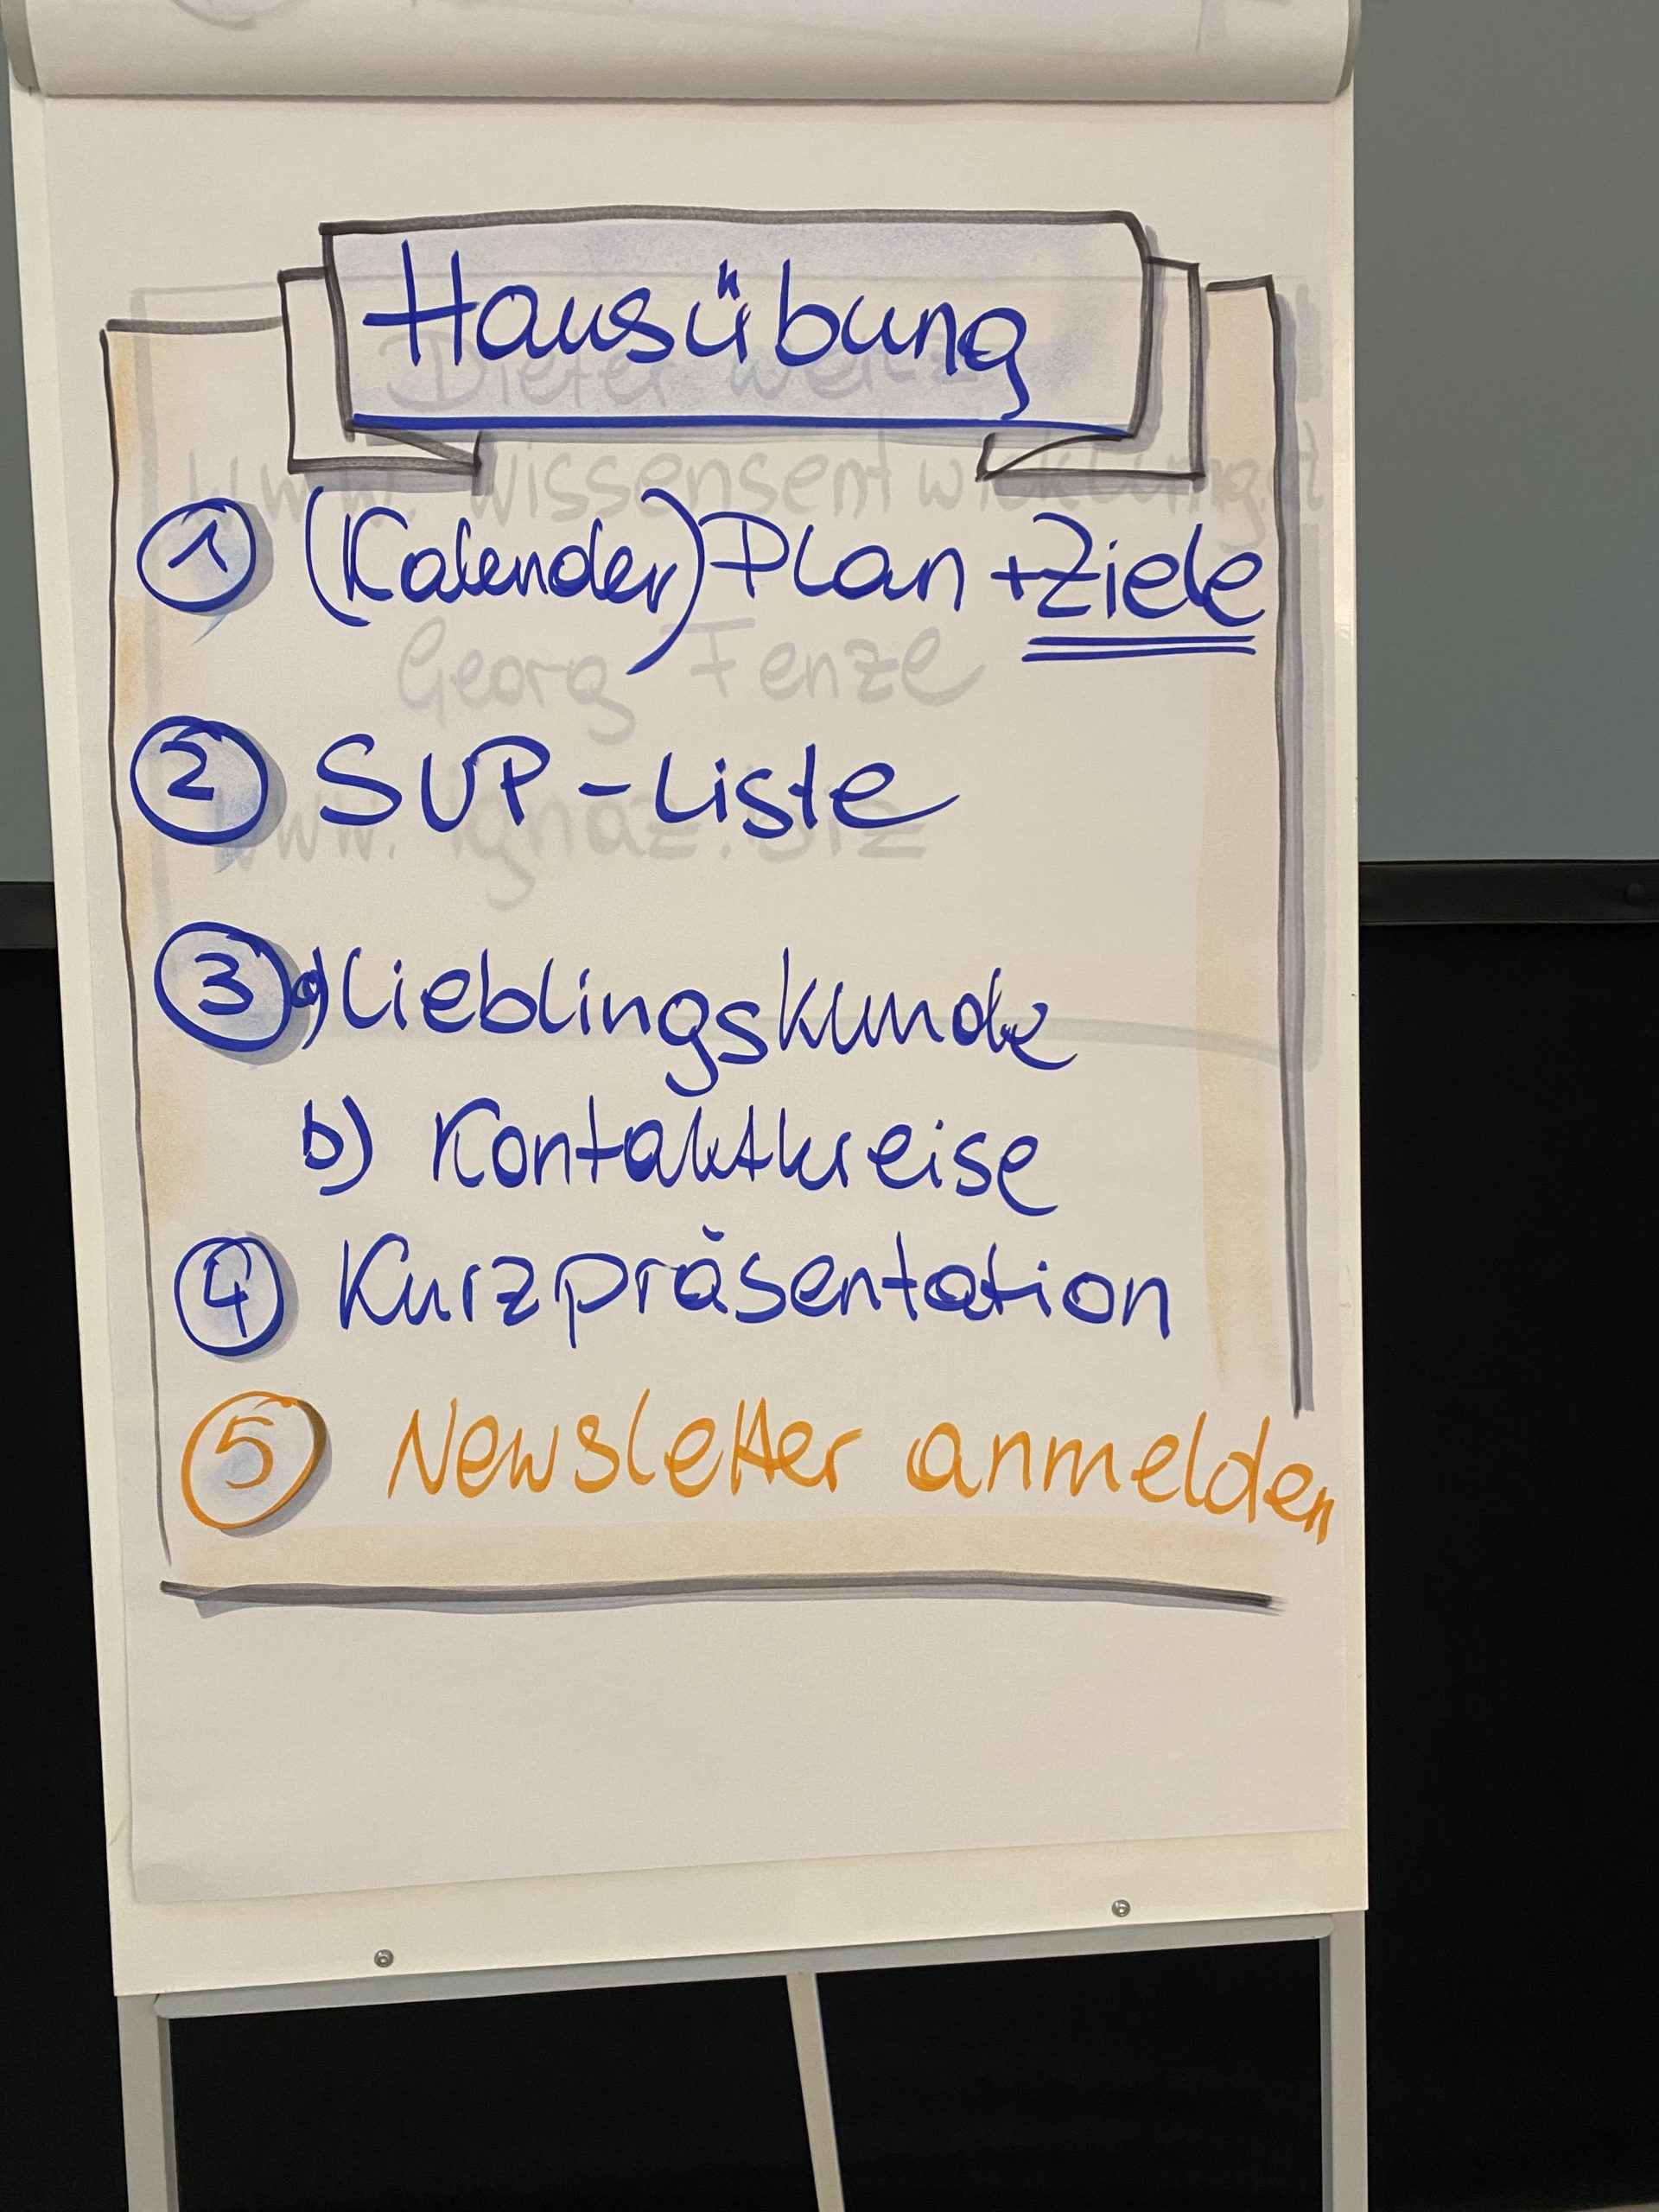 Hausübung
① (Kalender) Plan + Ziele
② SUP - Liste
③ a) Lieblingskunde
b) Kontaktkreise
④ Kurzpräsentation
⑤ Newsletter anmelden
Dieter
www.wissensentwicklung.at
Georg Fenze
www.ignaz.biz